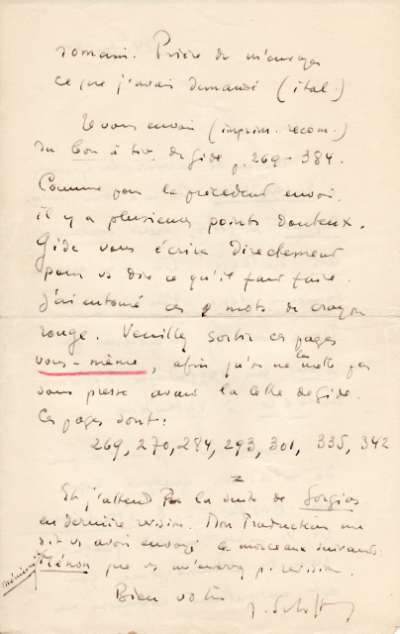 romain. Prière de m'envoyer
ce que j'avais demandé (ital.)
Je vous envoie (imprim. recom.)
du bon à tirer de Gide p. 269-384.
Comme pour le précédent envoi.
il y a plusieurs points douteux.
Gide vous écrira directement
pour vs dire ce qu'il faut faire.
J'ai entouré ces mots de crayon
rouge. Veuillez sortir ces pages
vous-même, afin qu'on ne les mette pas
sous presse avant la lettre de Gide.
Ces pages sont:
269, 270, 284, 293, 301, 335, 342
Et j'attends la suite de Gorgias
en dernière révision. Mon Traducteur me
dit vs avoir envoyé les morceaux suivants
Ménon que vs m'enverrez p. révision.
Bien votre